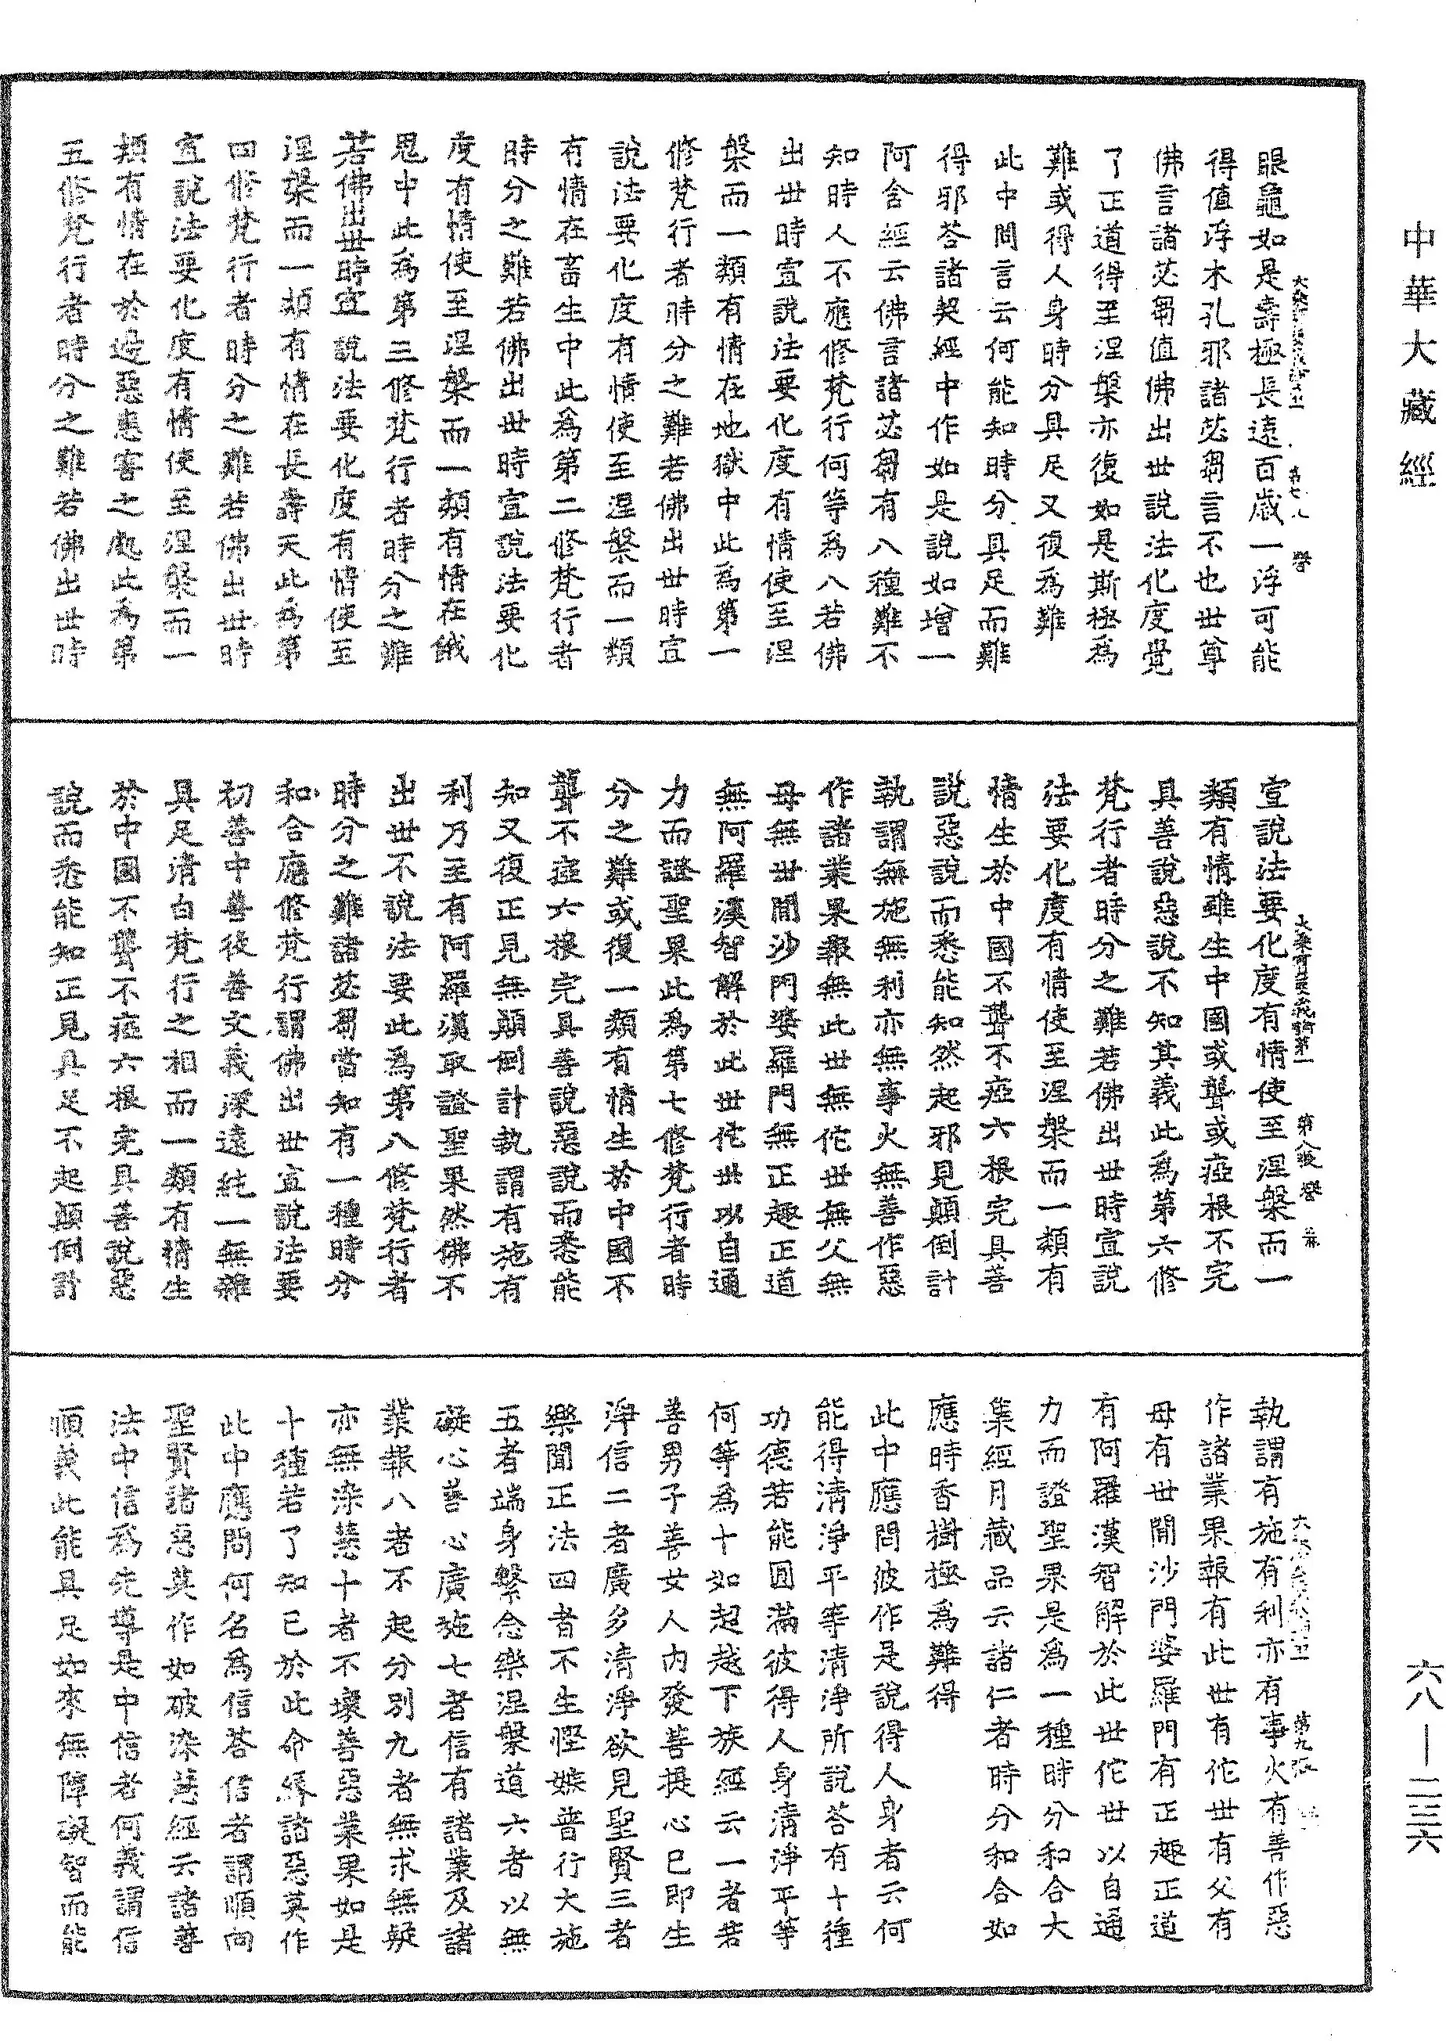 中華大藏經
六八—二三六
眼龜如是壽極長遠百歲一浮可能
得值浮木孔邪諸苾芻言不也世尊
佛言諸苾芻值佛出世說法化度覺
了正道得至涅槃亦復如是斯極為
難或得人身時分具足又復為難
此中問言云何能知時分具足而難
得邪荅諸契經中作如是說如增一
阿含經云佛言諸苾芻有八種難不
知時人不應修梵行何等為八若佛
出世時宣說法要化度有情使至涅
槃而一類有情在地獄中此為第一
修梵行者時分之難若佛出世時宣
說法要化度有情使至涅槃而一類
有情在畜生中此為第二修梵行者
時分之難若佛出世時宣說法要化
度有情使至涅槃而一類有情在餓
鬼中此為第三修梵行者時分之難
若佛出世時宣說法要化度有情使至
涅槃而一類有情在長壽天此為第
四修梵行者時分之難若佛出世時
宣說法要化度有情使至涅槃而一
類有情在於邊惡患害之處此為第
五修梵行者時分之難若佛出世時
第八張 譽
宣說法要化度有情使至涅槃而一
類有情雖生中國或聾或瘂根不完
具善說惡說不知其義此為第六修
梵行者時分之難若佛出世時宣說
法要化度有情使至涅槃而一類有
情生於中國不聾不瘂六根完具善
說惡說而悉能知然起邪見顛倒計
執謂無施無利亦無事火無善作惡
作諸業果報無此世無佗世無父無
母無世閒沙門婆羅門無正趣正道
無阿羅漢智解於此世佗世以自通
力而證聖果此為第七修梵行者時
分之難或復一類有情生於中國不
聾不瘂六根完具善說惡說而悉能
知又復正見無顛倒計執謂有施有
利乃至有阿羅漢取證聖果然佛不
出世不說法要此為第八修梵行者
時分之難諸苾芻當知有一種時分
和合應修梵行謂佛出世宣說法要
初善中善後善文義深遠純一無雜
具足清白梵行之相而一類有情生
於中國不聾不瘂六根完具善說惡
說而悉能知正見具足不起顛倒計
第九張
執謂有施有利亦有事火有善作惡
作諸業果報有此世有佗世有父有
母有世閒沙門婆羅門有正趣正道
有阿羅漢智解於此世佗世以自通
力而證聖果是為一種時分和合大
集經月藏品云諸仁者時分和合如
應時香樹極為難得
此中應問彼作是說得人身者云何
能得清淨平等清淨所說荅有十種
功德若能圓滿彼得人身清淨平等
何等為十如起越下族經云一者若
善男子善女人內發菩提心已即生
淨信二者廣多清淨欲見聖賢三者
樂聞正法四者不生慳嫉普行大施
五者端身繫念樂涅槃道六者以無
礙心善心廣施七者信有諸業及諸
業報八者不起分別九者無求無疑
亦無染慧十者不壞善惡業果如是
十種若了知已於此命緣諸惡莫作
此中應問何名為信荅信者謂順向
聖賢諸惡莫作如破染慧經云諸善
法中信為先導是中信者何義謂信
順義此能具足如來無障礙智而能